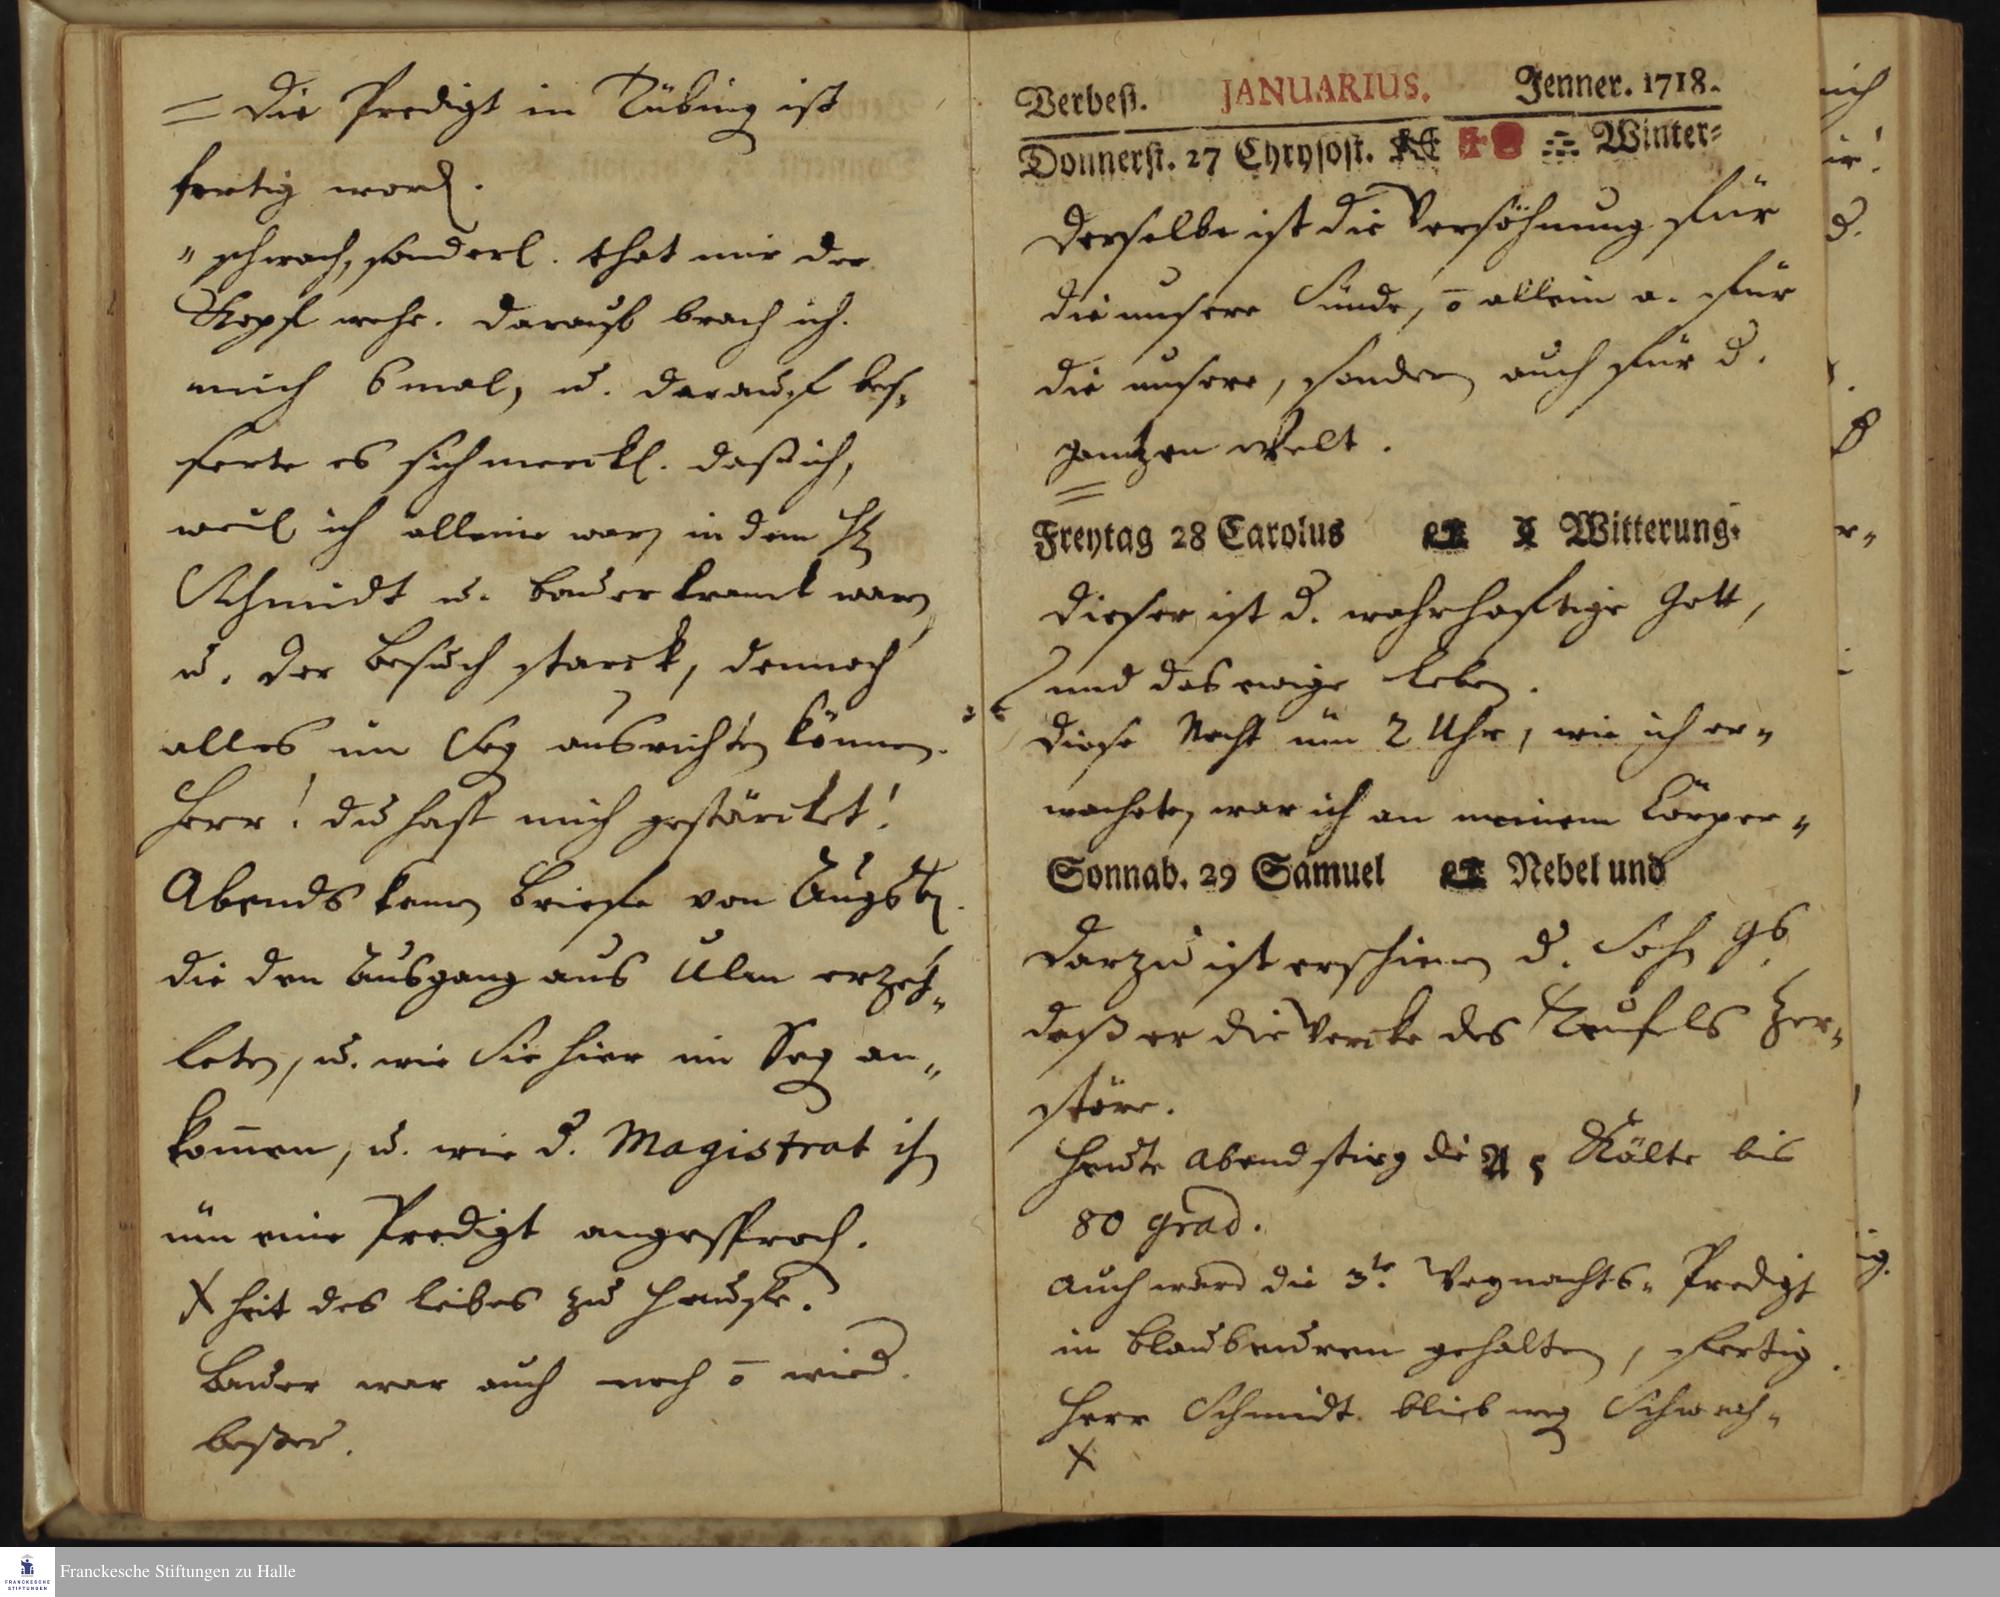 = Die Predigt in Tübing ist
fertig word.
" schwach, sonderl. that mir der
Kopf wehe. darauf brach ich
mich 6 mal, u. darauf bes-
serte es sich merckl. daß ich,
weil ich alleine war, in dem H.
Schmidt u. Bauer kranck waren
u. der Besuch starck, dennoch
alles im Seg ausrichten können.
Herr! du hast mich gestärcket!
Abends kamen Briefe von Augsb.
die den Ausgang aus Ulm erzeh-
leten, u. wie Sie hier im Seg an-
kom̄en, u. wie d. Magistrat ihn
um eine Predigt angesproch.
X heit des Leibes zu Hause.
Bauer war auch noch ō wied.
besser.
Verbess. JANUARIUS. Jenner. 1718.
Donnerst. 27 Chrysost. Winter-
Derselbe ist die Versöhnung für
die unsere Sünde, ō allein a. für
die unsere, sondern auch für d.
gantzen Welt.
=
Freytag 28 Carolus Witterung.
Dieser ist d. wahrhaftige Gott,
und das ewige Leben.
Diese Nacht um 2 Uhr, wie ich er-
wachete, war ich an meinem Cörper "
Sonnab. 29 Samuel Nebel und
Darzu ist erschienen d. Sohn Gs.
daß er die Wercke des Teufels zer-
störe.
Heute Abend stieg die Kälte bis
80 grad.
Auch ward die 3te Weynachts-Predigt
in Blaubeuren gehalten, fertig.
Herr Schmidt blieb weg Schwach-
X
Franckesche Stiftungen zu Halle
FRANCKESCHE
STIFTUNGEN